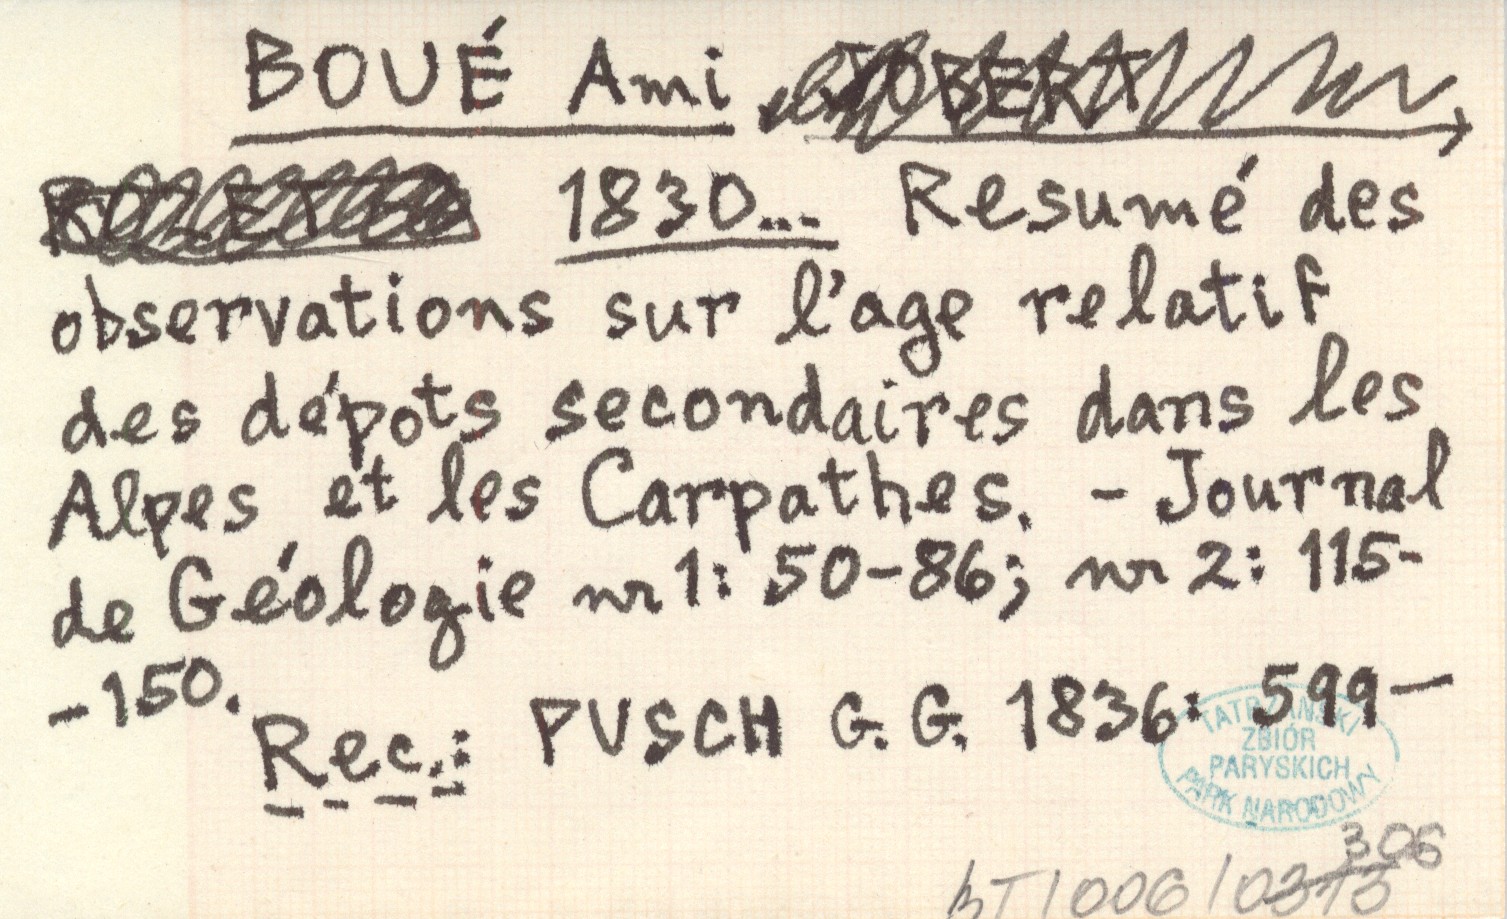 BOUÉ Ami
1830... Resumé des
observations sur l'age relatif
des dépots secondaires dans les
Alpes et les Carpathes. - Journal
de Géologie nr 1: 50-86; nr 2: 115-
-150.
Rec.: PUSCH G. G. 1836: 599-
TATRZAŃSKI
ZBIÓR
PARYSKICH
PARK NARODOWY
306
/006/0313